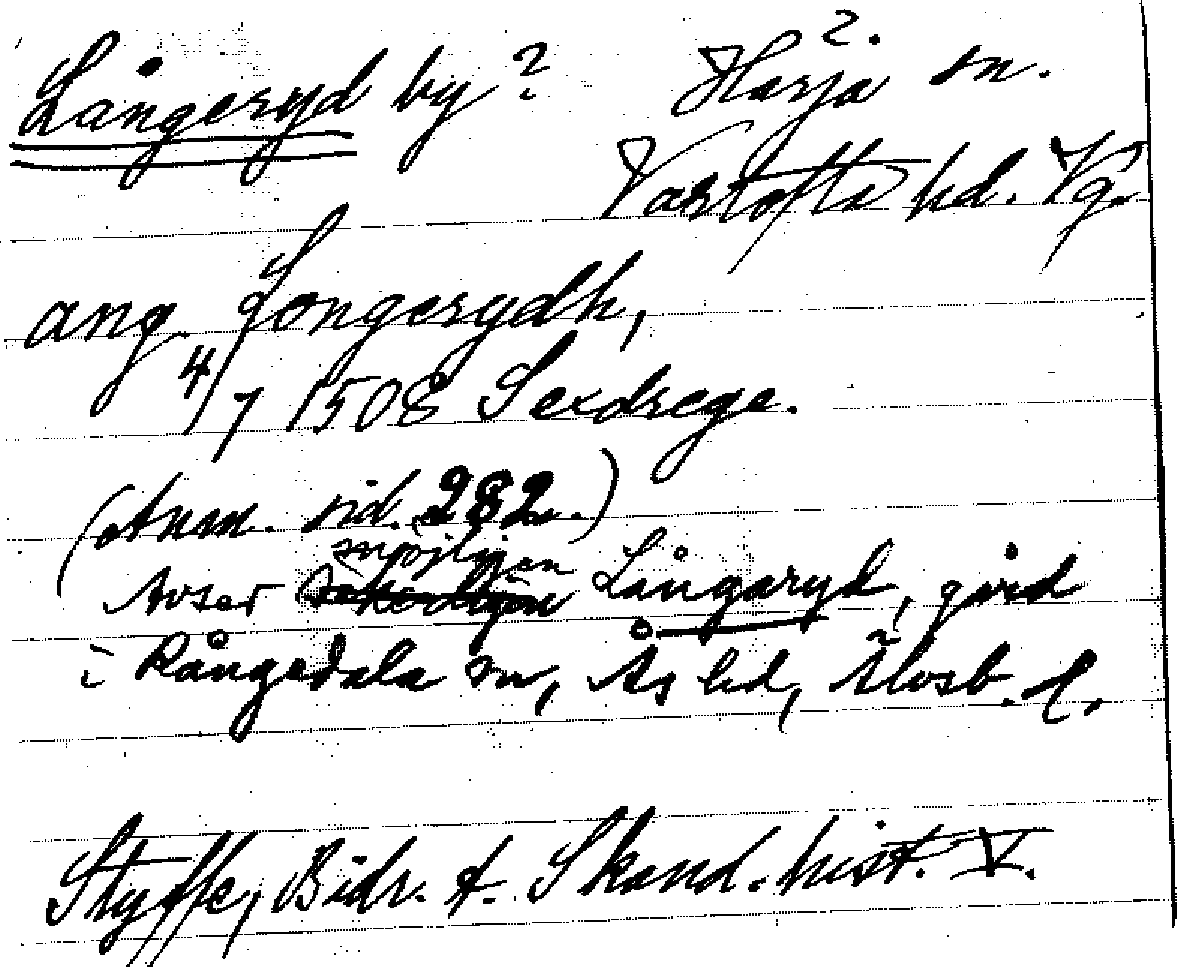 Långeryd by? Harja ?. sn.
Vartofta hd. Vg.
ang. Longerydh,
4/7 1508 Sexdrege.
(Anm. sid. 282.)
möjligen
Avser säkerligen Långaryd, gård
i Rångedala sn, Ås hd, Älvsb. l.
Styffe, Bidr. t. Skand. hist. V.